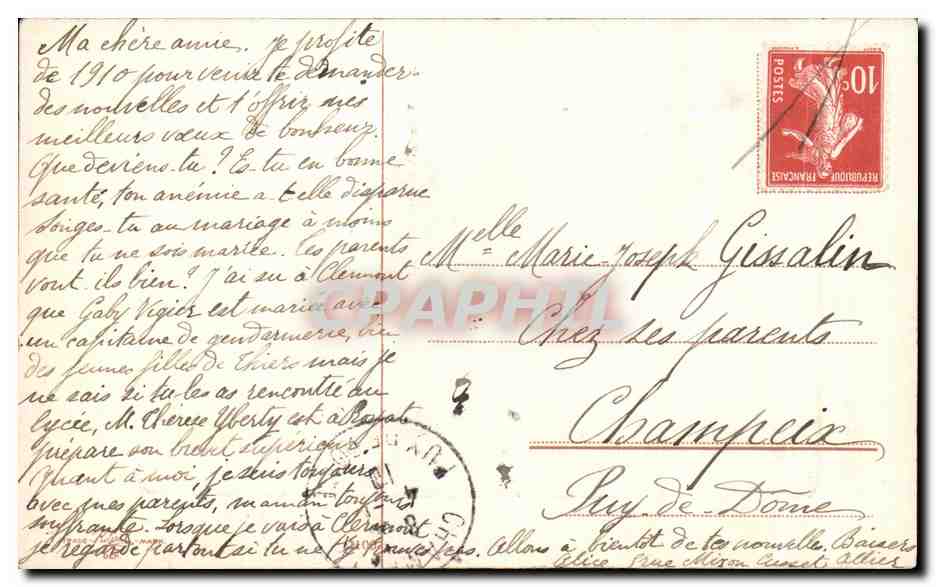 Ma chère amie. je profite
de 1910 pour venir te demander
des nouvelles et t'offrir mes
meilleurs vœux de bonheur.
Que deviens-tu? Es-tu en bonne
santé, ton anémie a-t-elle disparue
songes-tu au mariage à moins
que tu ne sois mariée. Tes parents
vont-ils bien? J'ai su à Clermont
que Gaby Vigier est mariée avec
un capitaine de gendarmerie,
des jeunes filles de Thiers mais je
ne sais si tu les as rencontré au
lycée, M. Thérèse Yberty est à Royat
prépare son brevet supérieur.
Quant à moi, je suis toujours
avec mes parents, maman toujours
souffrante. Lorsque je vais à Clermont
je regarde partout si tu ne
Allons à bientôt de tes nouvelles. Baisers
Alice rue Cusset Allier
Melle Marie-Joseph Gissalin
Chez ses parents
Champeix
Puy-de-Dome
10c
POSTES
REPUBLIQUE FRANÇAISE
CPARHIL